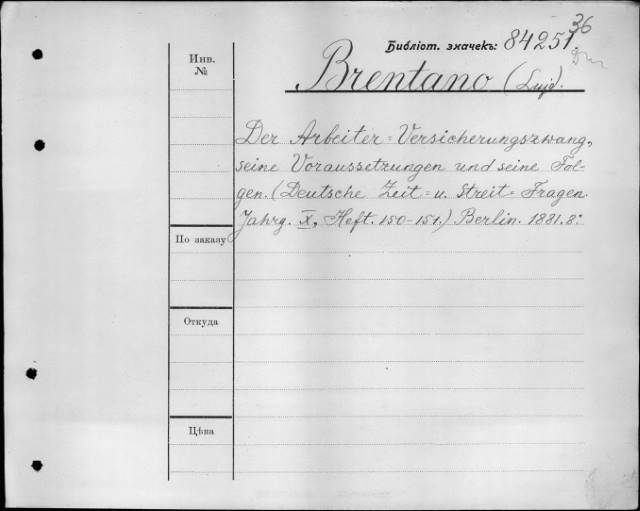 36
Библіот. значекъ: 84251
Инв.
№
Brentano (Lujo).
Der Arbeiter=Versicherungszwang,
seine Voraussetzungen und seine Fol-
gen. (Deutsche Zeit= u. Streit=Fragen.
Jahrg. X, Heft. 150-151.) Berlin. 1881. 8:
По заказу
Откуда
Цѣна